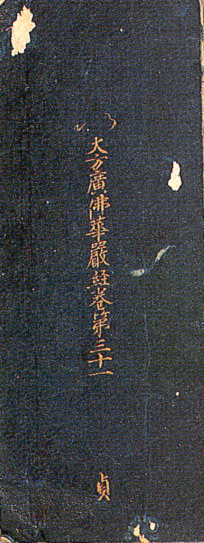 大方廣佛華嚴經卷第三十一
貞